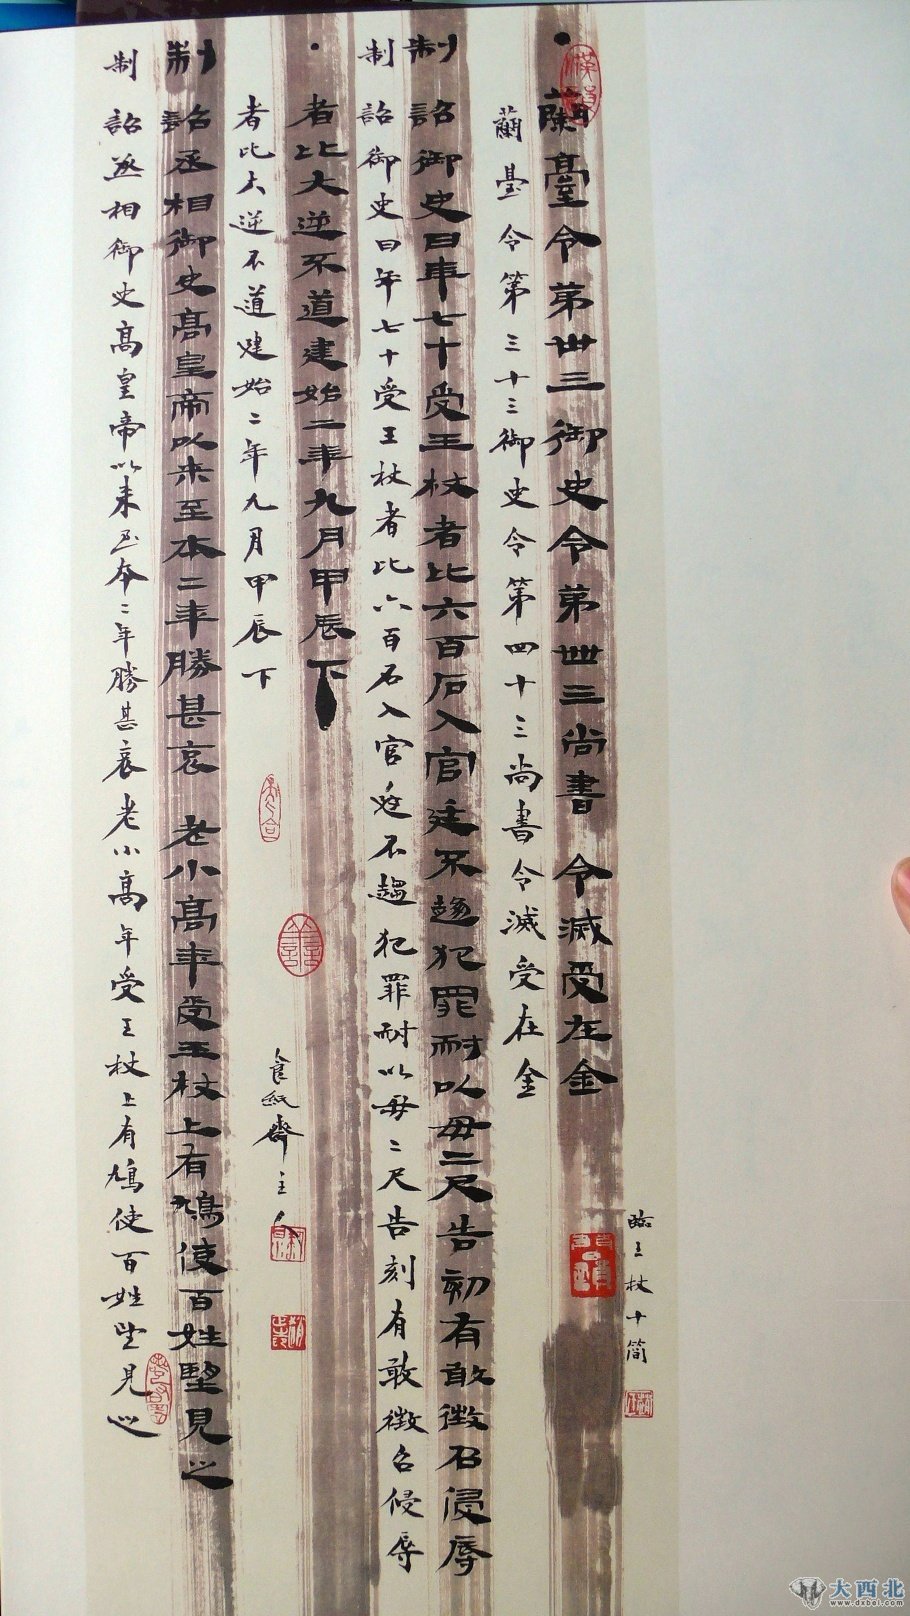 蘭臺令第卅三御史令第卌三尚書令滅受在金
蘭臺令第三十三御史令第四十三尚書令滅受在金
制詔御史曰年七十受王杖者比六百石入官廷不趨犯罪耐以毋二尺告劾有敢徵召侵辱
制詔御史曰年七十受王杖者比六百石入官廷不趨犯罪耐以毋二尺告刻有敢徵召侵辱
者比大逆不道建始二年九月甲辰下
者比大逆不道建始二年九月甲辰下
制詔丞相御史高皇帝以來至本二年勝甚哀老小高年受王杖上有鳩使百姓望見之
制詔丞相御史高皇帝以來至本二年勝甚哀老小高年受王杖上有鳩使百姓望見之
臨王杖十簡
食紙齋主人
大西北
www.dxbei.com